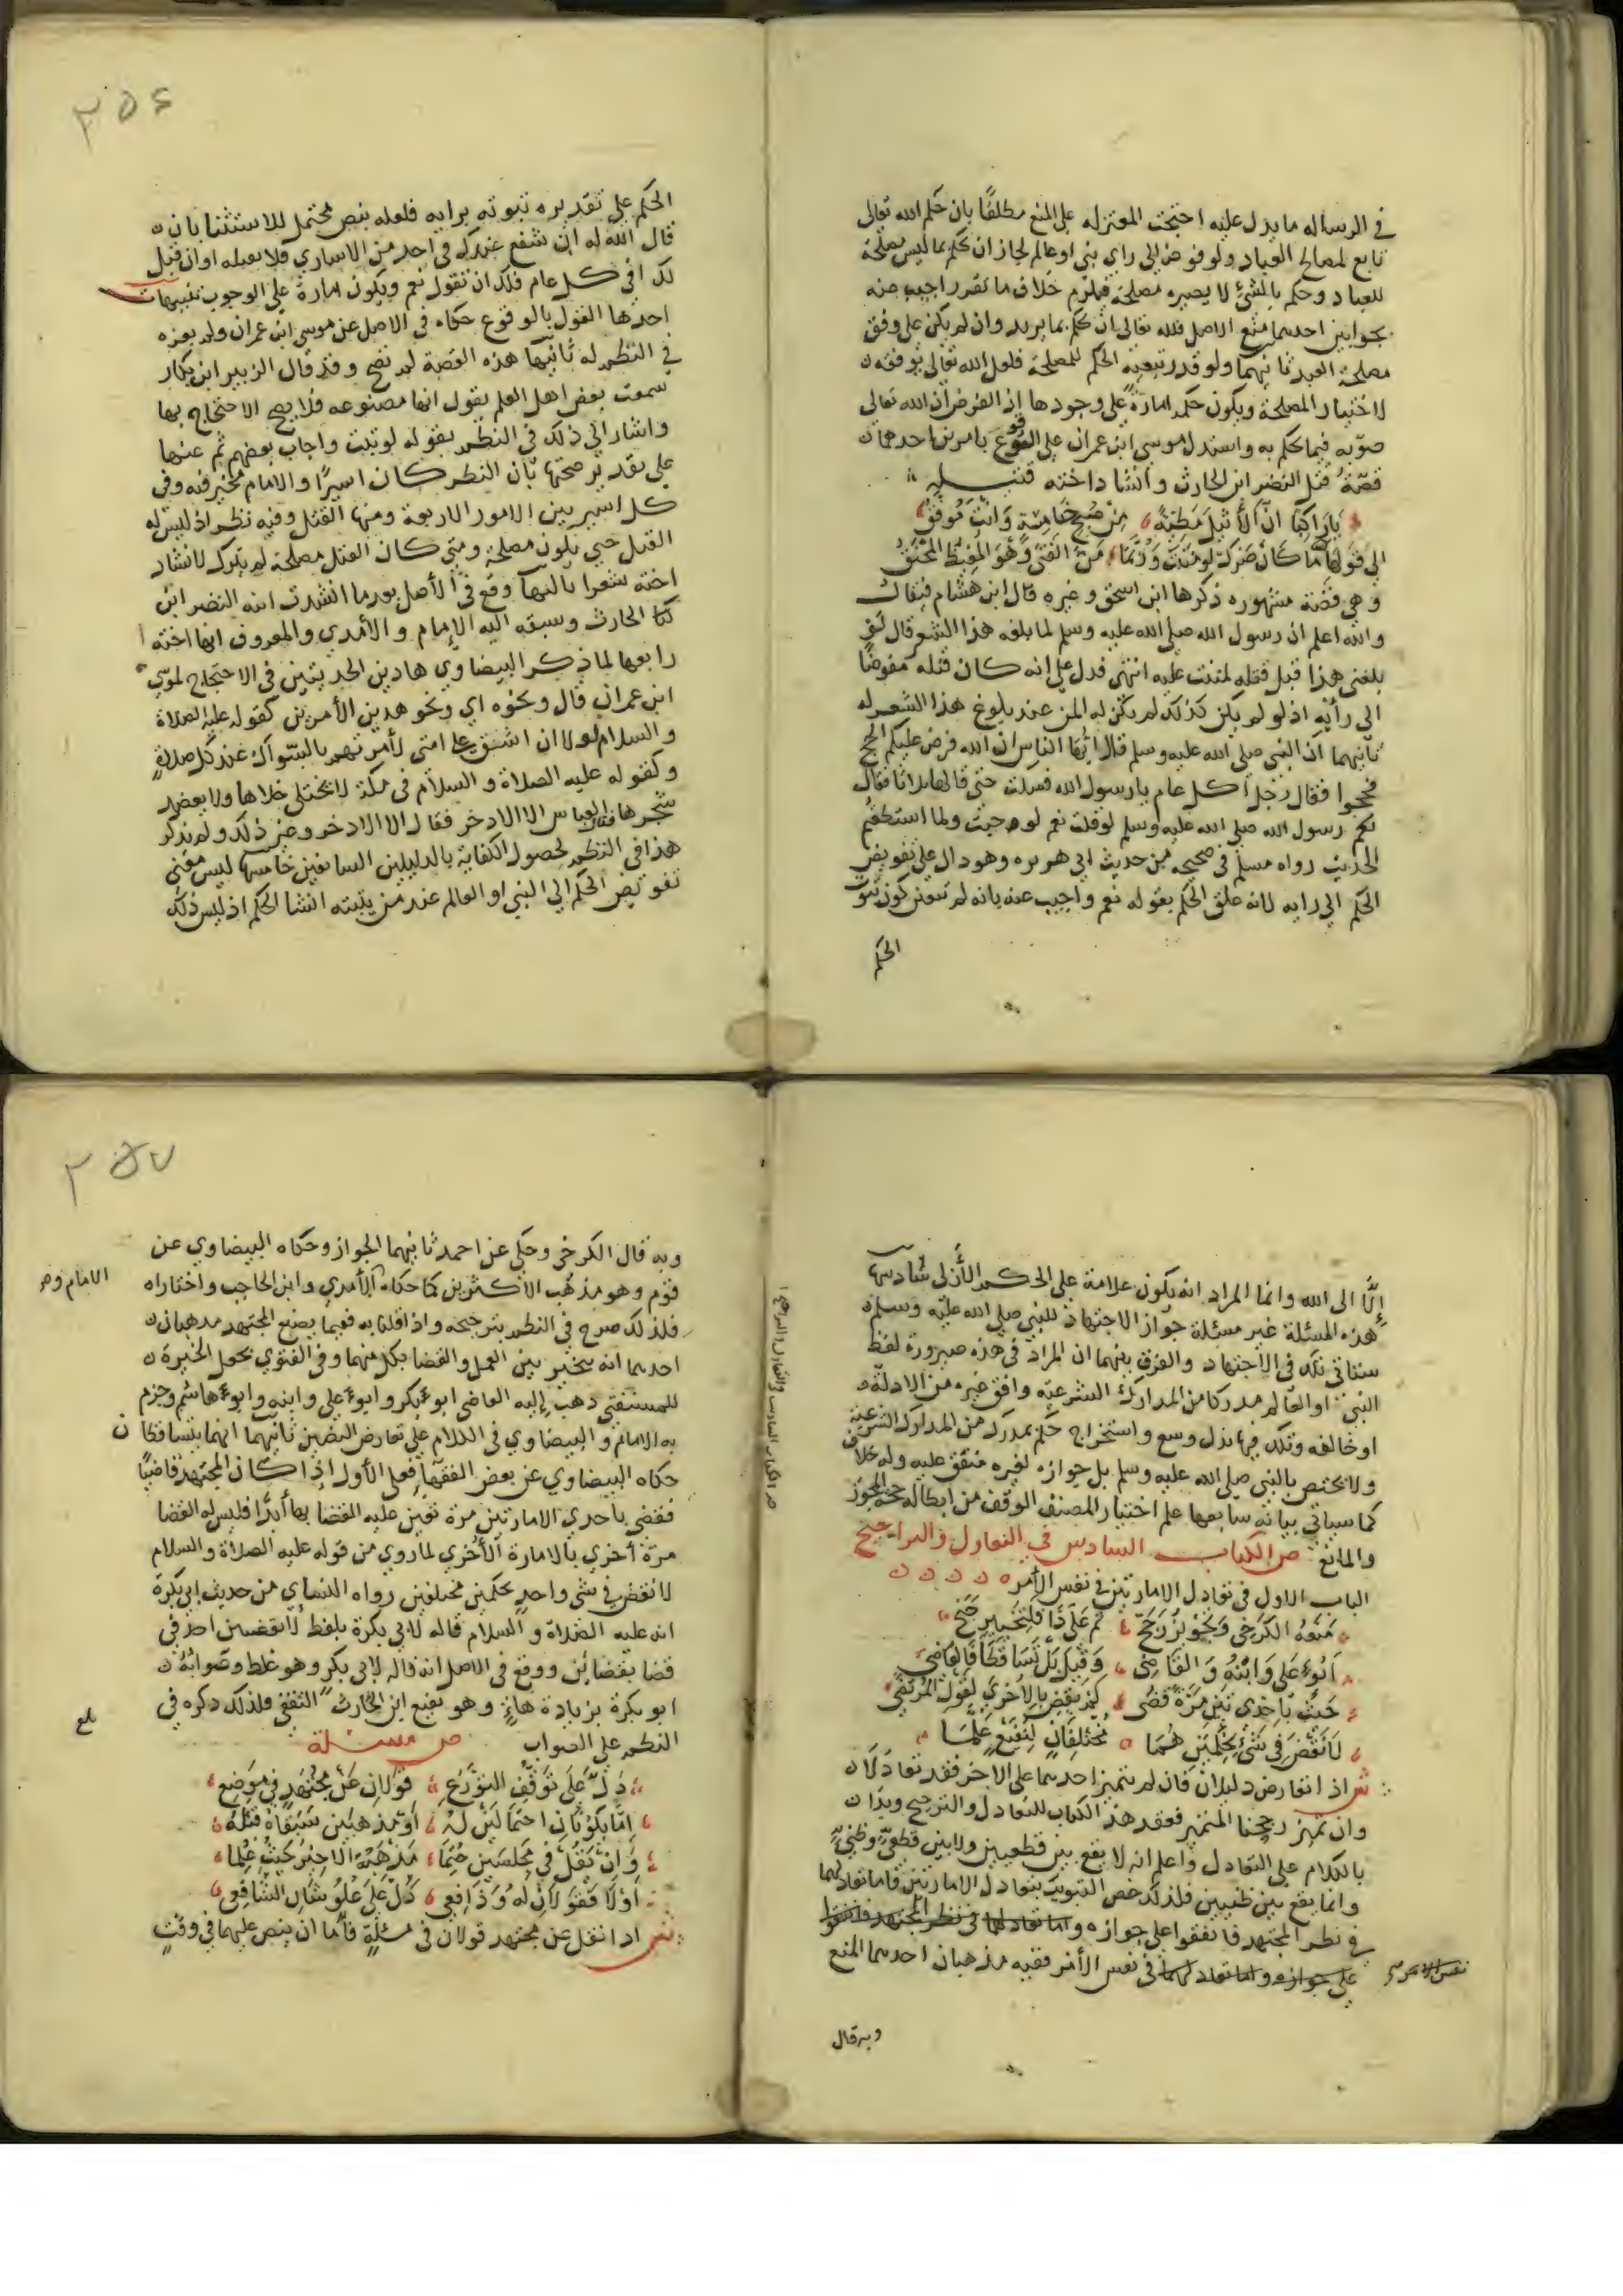 في الرساله ما يدل عليه احتجت المعتزله على المنع مطلقًا بان حكم الله تعالى
تابع لمصالح العباد ولو فوض الى راي نبي او عالم لجاز ان يحكم بما ليس بمصلحة
للعباد وحكمه بالشئ لا يصيره مصلحة فيلزم خلاف ما تقرر اجيب عنه
بجوابين احدهما منع الاصل فلله تعالى ان يحكم بما يريد وان لم يكن على وفق
مصلحة العبد ثانيهما ولو قدر تبعية الحكم للمصلحة فلعل الله تعالى يوفقه
لاختيار المصلحة ويكون حكمه امارة على وجودها اذ الفرض ان الله تعالى
صوبه فيما يحكم به واستدل لموسى ابن عمران على الوقوع بامرين احدهما
قصة قتل النضر ابن الحارث وانشاد اخته قتيله
يا راكبا ان الأثيل مظنة من صبح خامسة وانت موفق
الى قولها ما كان ضرك لو مننت وربما من الفتى وهو المغيظ المحنق
وهي قصة مشهوره ذكرها ابن اسحق وغيره قال ابن هشام فيقال
والله اعلم ان رسول الله صلى الله عليه وسلم لما بلغه هذا الشعر قال لو
بلغني هذا قبل قتله لمننت عليه انتهى فدل على انه كان قتله مفوضًا
الى رأيه اذ لو لم يكن كذلك لم يكن له المن عند بلوغ هذا الشعر له
ثانيهما ان النبي صلى الله عليه وسلم قال ايها الناس ان الله فرض عليكم الحج
فحجوا فقال رجل أكل عام يا رسول الله فسكت حتى قالها ثلاثا فقال
رسول الله صلى الله عليه وسلم لو قلت نعم لوجبت ولما استطعتم
الحديث رواه مسلم في صحيحه من حديث ابي هريره وهو دال على تفويض
الحكم الى رايه لانه علق الحكم بقوله نعم واجيب عنه بانه لم يتعين كون ثبوت
الحكم
٢٥٦
الحكم على تقديره ثبوته برايه فلعله بنص محتمل للاستثنا بان
قال الله له ان شفع عندك في احد من الاساري فلا تقتله او ان قيل
لك افي كل عام فلك ان تقول نعم ويكون امارة على الوجوب تنبيهات
احدها القول بالوقوع حكاه في الاصل عن موسى ابن عمران ولم يعزه
في النظم له ثانيها هذه القصة لم تصح وقد قال الزبير ابن بكار
سمعت بعض اهل العلم يقول انها مصنوعه فلا يصح الاحتجاج بها
واشار الى ذلك في النظم بقوله لو ثبت واجاب بعضهم ثم عنها
على تقدير صحتها بأن النظر كان اسيرًا والامام مخير فيه وفي
كل اسير بين الامور الاربعة ومنها القتل وفيه نظر اذ ليس له
القتل حتى يكون مصلحة ومتى كان القتل مصلحة لم يترك لانشاد
اخته شعرا ثالثها وقع في الأصل بعد ما انشدت ابنه النضر ابن
الحارث وسبقه اليه الإمام والأمدي والمعروف انها اخته
رابعها لما ذكر البيضاوي هاذين الحديثين في الاحتجاج لموسى
ابن عمران قال ونحوه اي ونحو هذين الأمرين كقوله عليه الصلاة
والسلام لولا ان اشق على امتي لأمرتهم بالسواك عند كل صلاةٍ
وكقوله عليه الصلاة والسلام في مكة لا يختلى خلاها ولا يعضد
شجرها فقال العباس الا الاذخر فقال الا الاذخر وغير ذلك ولم يذكر
هذا في النظم لحصول الكفاية بالدليلين السابقين خامسها ليس معنى
تفويض الحكم الى النبي او العالم عند من يثبته انشا الحكم اذ ليس ذلك
إلَّا الى الله وانما المراد انه يكون علامة على الحكم الأزلى سادسها
هذه المسئلة غير مسئلة جواز الاجتهاد للنبي صلى الله عليه وسلم
ستاتي تلك في الاجتهاد والفرق بينهما ان المراد في هذه صيرورة لفظ
النبي او العالم مدركا من المدارك الشرعيه وافق غيره من الادلة
او خالفه وتلك فيها بذل وسع واستخراج حكم بمدرك من المدارك الشرعية
ولا يختص بالنبي صلى الله عليه وسلم بل جوازه لغيره متفق عليه وله خلاف
كما سياتي بيانه سابعها علم اختيار المصنف الوقف من ابطاله حجة المجوز
والمانع ص الكتاب السادس في التعادل والتراجيح
الباب الاول في تعادل الامارتين في نفس الأمر
منعه الكرخي وتجويز رجح ثم على ذا فلتخيير جنح
أبو علي وابنه والقاضي وقيل بل تساقطا فالقاضي
حيث باحدى تين مرة قضى لم يقض بالأخرى لقول المرتضى
لا تقض في شئ بحكمين هما مختلفان لنفيع علما
ش اذا تعارض دليلان فان لم يتميز احدهما على الاخر فقد تعادلا
وان تميز رجحنا المتميز فعقد هذا الكتاب للتعادل والترجيح وبدا
بالكلام على التعادل واعلم انه لا يقع بين قطعيين ولا بين قطعيٍّ وظنيٍّ
وانما يقع بين ظنيين فلذلك خص التبويب بتعادل الامارتين فاما تعادلهما
في نظر المجتهد فاتفقوا على جوازه واما تعادلهما في نظر المجتهد فاتفقوا
على جوازه واما تعادلهما في نفس الأمر ففيه مذهبان احدهما المنع
نفس الامر
وبه قال
ص الكتاب السادس في التعادل والتراجيح
٢٥٧
وبه قال الكرخي وحكي عن احمد ثانيهما الجواز وحكاه البيضاوي عن
قوم وهو مذهب الاكثرين كما حكاه الأمدي وابن الحاجب واختاراه
الامام وهو
فلذلك صرح في النظم بترجيحه واذا قلنا به فبما يصنع المجتهد مذهبان
احدهما انه يتخير بين العمل والقضا بكل منهما وفي الفتوي يجعل الخيرة
للمستفتى ذهب إليه القاضي ابو بكر وابو على وابنه وابو هاشم وجزم
به الامام والبيضاوي في الكلام على تعارض النصين ثانيهما انهما يتساقطان
حكاه البيضاوي عن بعض الفقهآ فعلى الأول إذا كان المجتهد قاضيًا
فقضى باحدي الامارتين مرة تعين عليه القضا بها أبدًا فليس له القضا
مرة أخري بالامارة الأخري لما روي من قوله عليه الصلاة والسلام
لا تقض في شى واحدٍ بحكمين مختلفين رواه النساي من حديث ابي بكرة
انه عليه الصلاة والسلام قاله لابي بكرة بلفظ لا يقضين احد في
قضا بقضائين ووقع في الاصل انه قاله لابي بكر وهو غلط وصوابه
ابو بكرة بزيادة هاءٍ وهو نفيع ابن الحارث الثقفي فلذلك ذكره في
بلغ
النظم على الصواب ص مسئلة
دل على توقف التورع قولان عن مجتهد في موضع
وان نقل في مجلسين حتما مذهبه الاخير حيث علما
أو لا فقولان له وذا فعي دل على علو شان الشافعي
ش اذا نقل عن مجتهد قولان في مسئلةٍ فأما ان ينص عليهما في وقتٍ